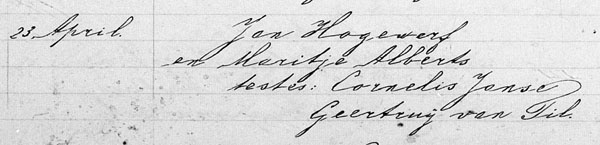 23 April. Jan Hogewerf
en Maritje Alberts
testes: Cornelis Janse
Geertruy van Til.